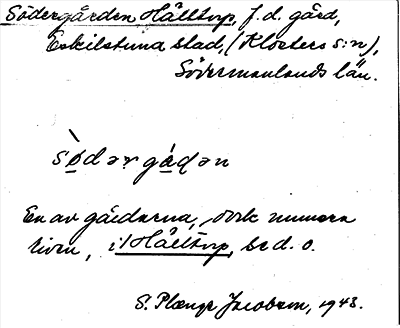 Södergården Hälltorp, f.d. gård,
Eskilstuna stad, (Klosters s:n),
Södermanlands län.
sø̀dərgáḍən
En av gårdarna, dock numera
riven, i Hälltorp, se d. o.
S. Plænge Jacobson, 1943.